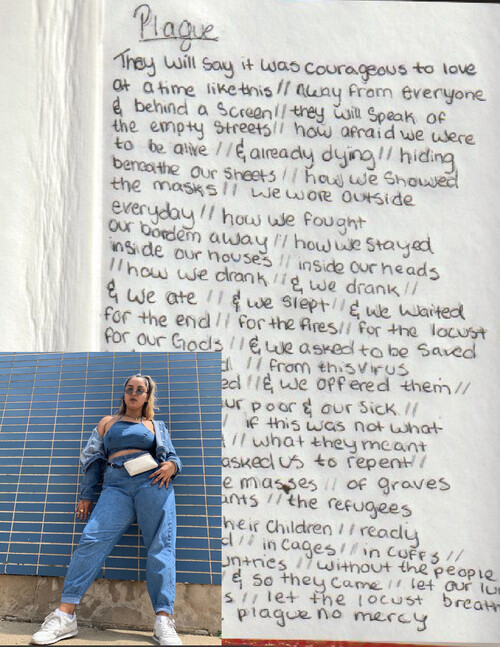 Plague
They will say it was courageous to love
at a time like this // Away from everyone
& behind a screen // they will speak of
the empty streets // how afraid we were
to be alive // & already dying // hiding
beneathe our sheets // how we showed
the masks // we wore outside
everyday // how we fought
our bordem away // how we stayed
inside our houses // inside our heads
// how we drank // & we drank //
& we ate // & we slept // & we waited
for the end // for the fires // for the locust
for our Gods // & we asked to be saved
// from this virus
ed // & we offered them //
ur poor & our sick //
if this was not what
// what they meant
asked us to repent //
e masses // of graves
ants // the refugees
heir children // ready
d // in cages // in cuffs //
untries // without the people
& so they came // let our lu
s // let the locust breath
plague no mercy